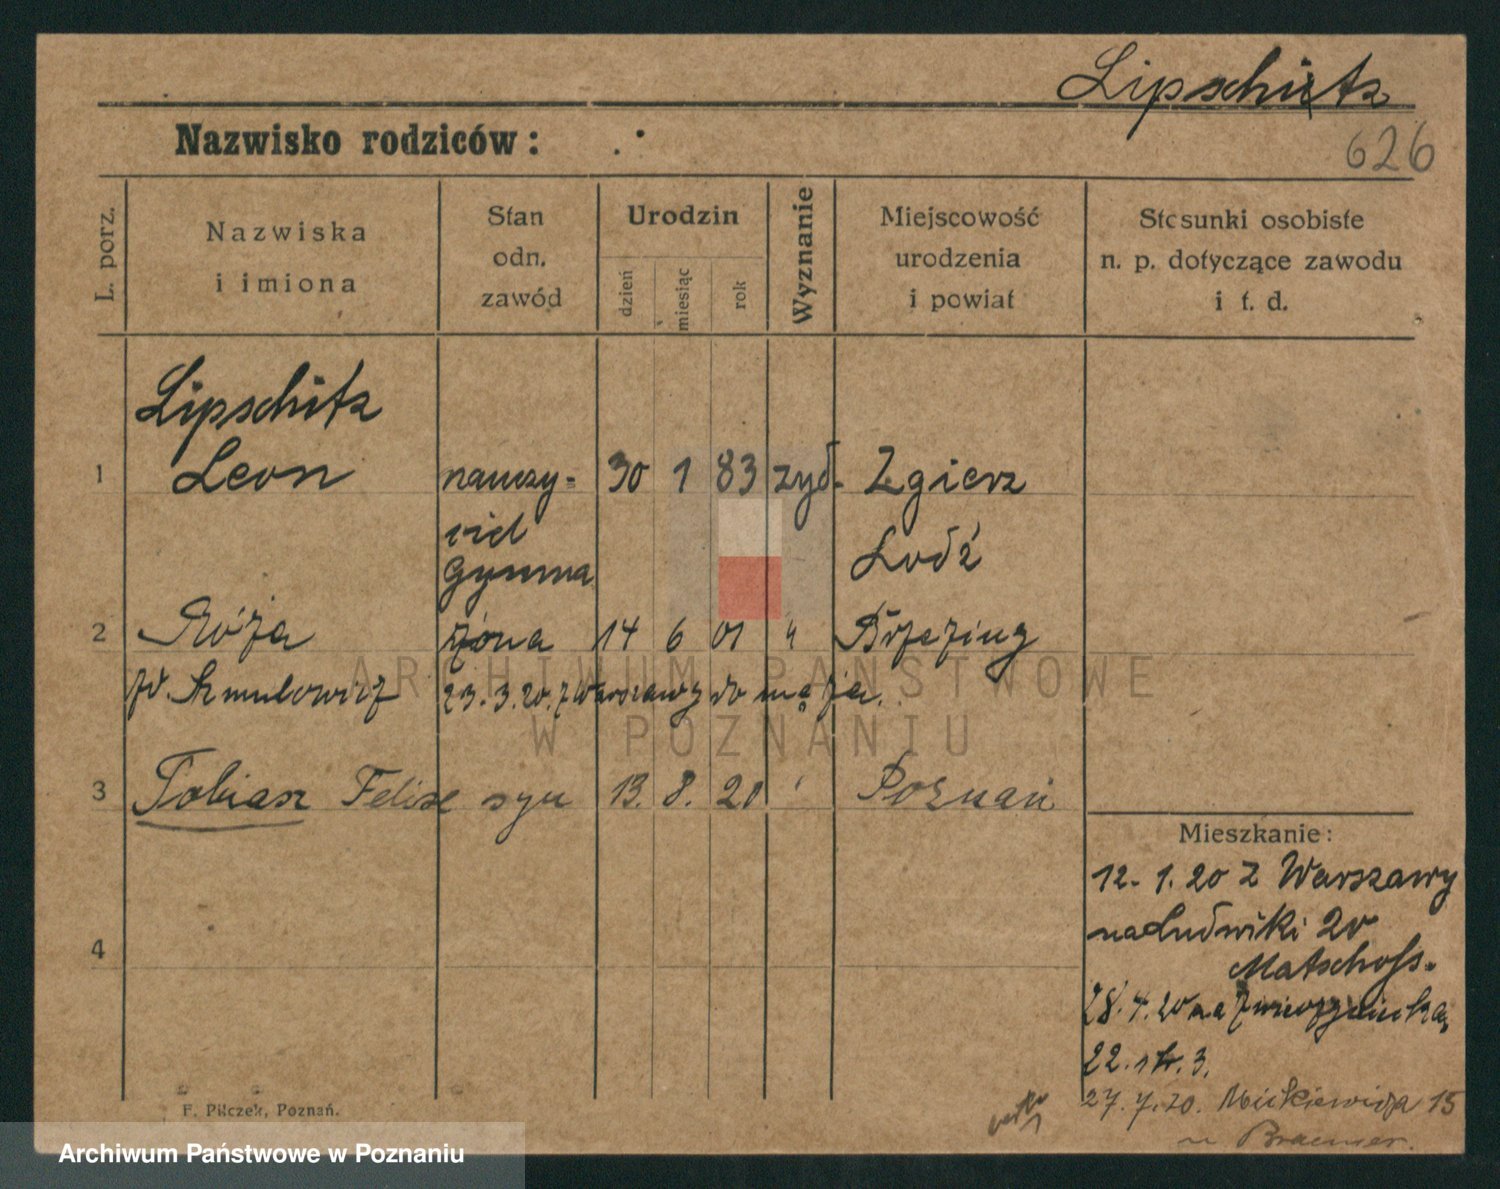 Lipschitz
626
Nazwisko rodziców:
L. porz.
Nazwiska
i imiona
Stan
odn.
zawód
Urodzin
dzień
miesiąc
rok
Wyznanie
Miejscowość
urodzenia
i powiat
Stosunki osobiste
n. p. dotyczące zawodu
i t. d.
Lipschitz
1 Leon nauczy- 30 1 83 żyd. Zgierz
ciel Łódź
Gymna
2 Róża żona 14 6 01 " Brzeziny
Szmulowicz 23.3.20. z Warszawy do męża.
3 Tobiasz Felix syn 13. 8. 20 ' Poznań
Mieszkanie:
12. 1. 20 z Warszawy
na Ludwiki 20
4
Matschoss.
28.4.20 na
22. str. 3.
27.7.20. Mickiewicza 15
u
F. Pilczek, Poznań.
ARCHIWUM PAŃSTWOWE
W POZNANIU
Archiwum Państwowe w Poznaniu